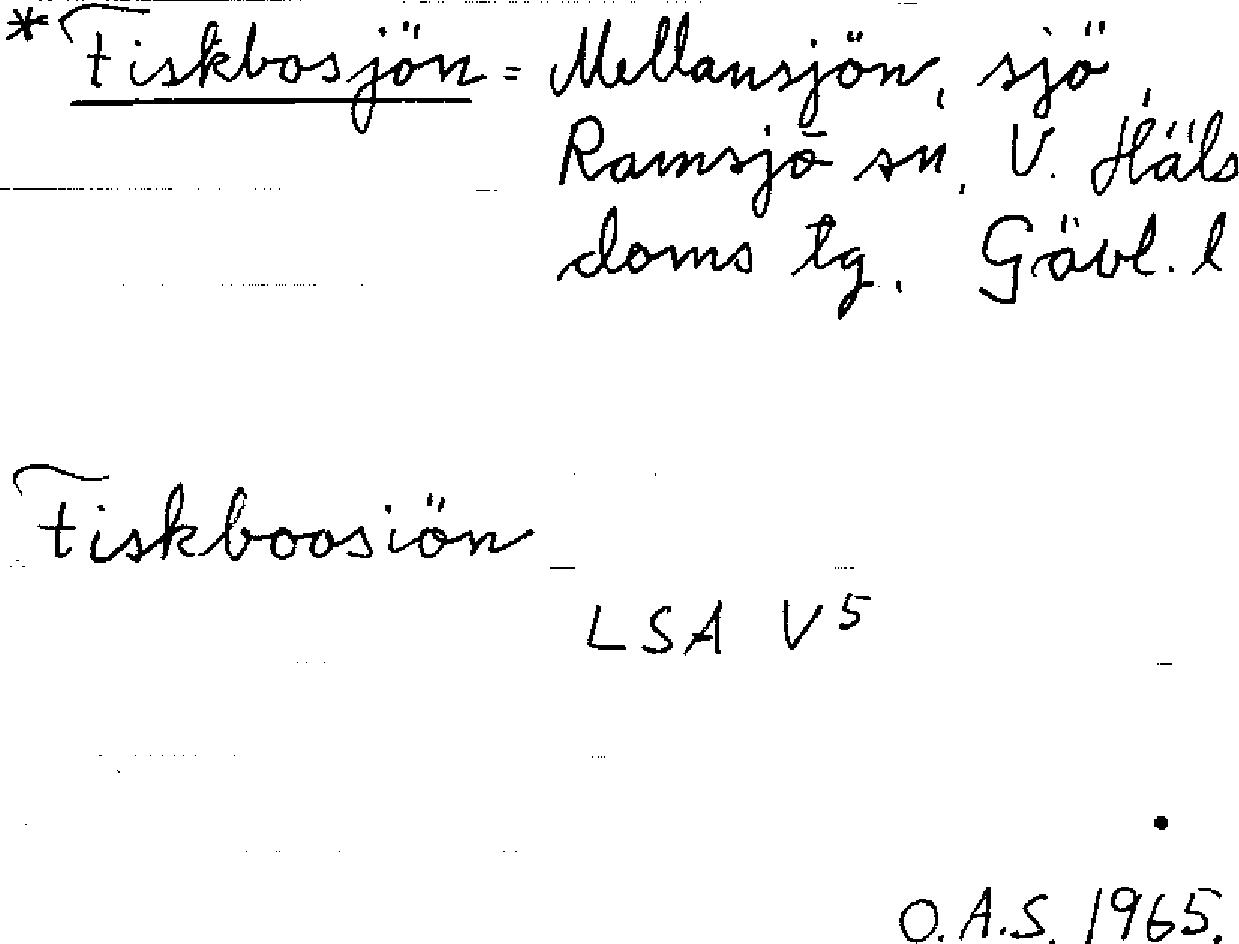 *Fiskbosjön = Mellansjön, sjö,
Ramsjö sn, V. Häls
doms tg, Gävl. l
Fiskboosiön
LSA V5
O.A.S. 1965.